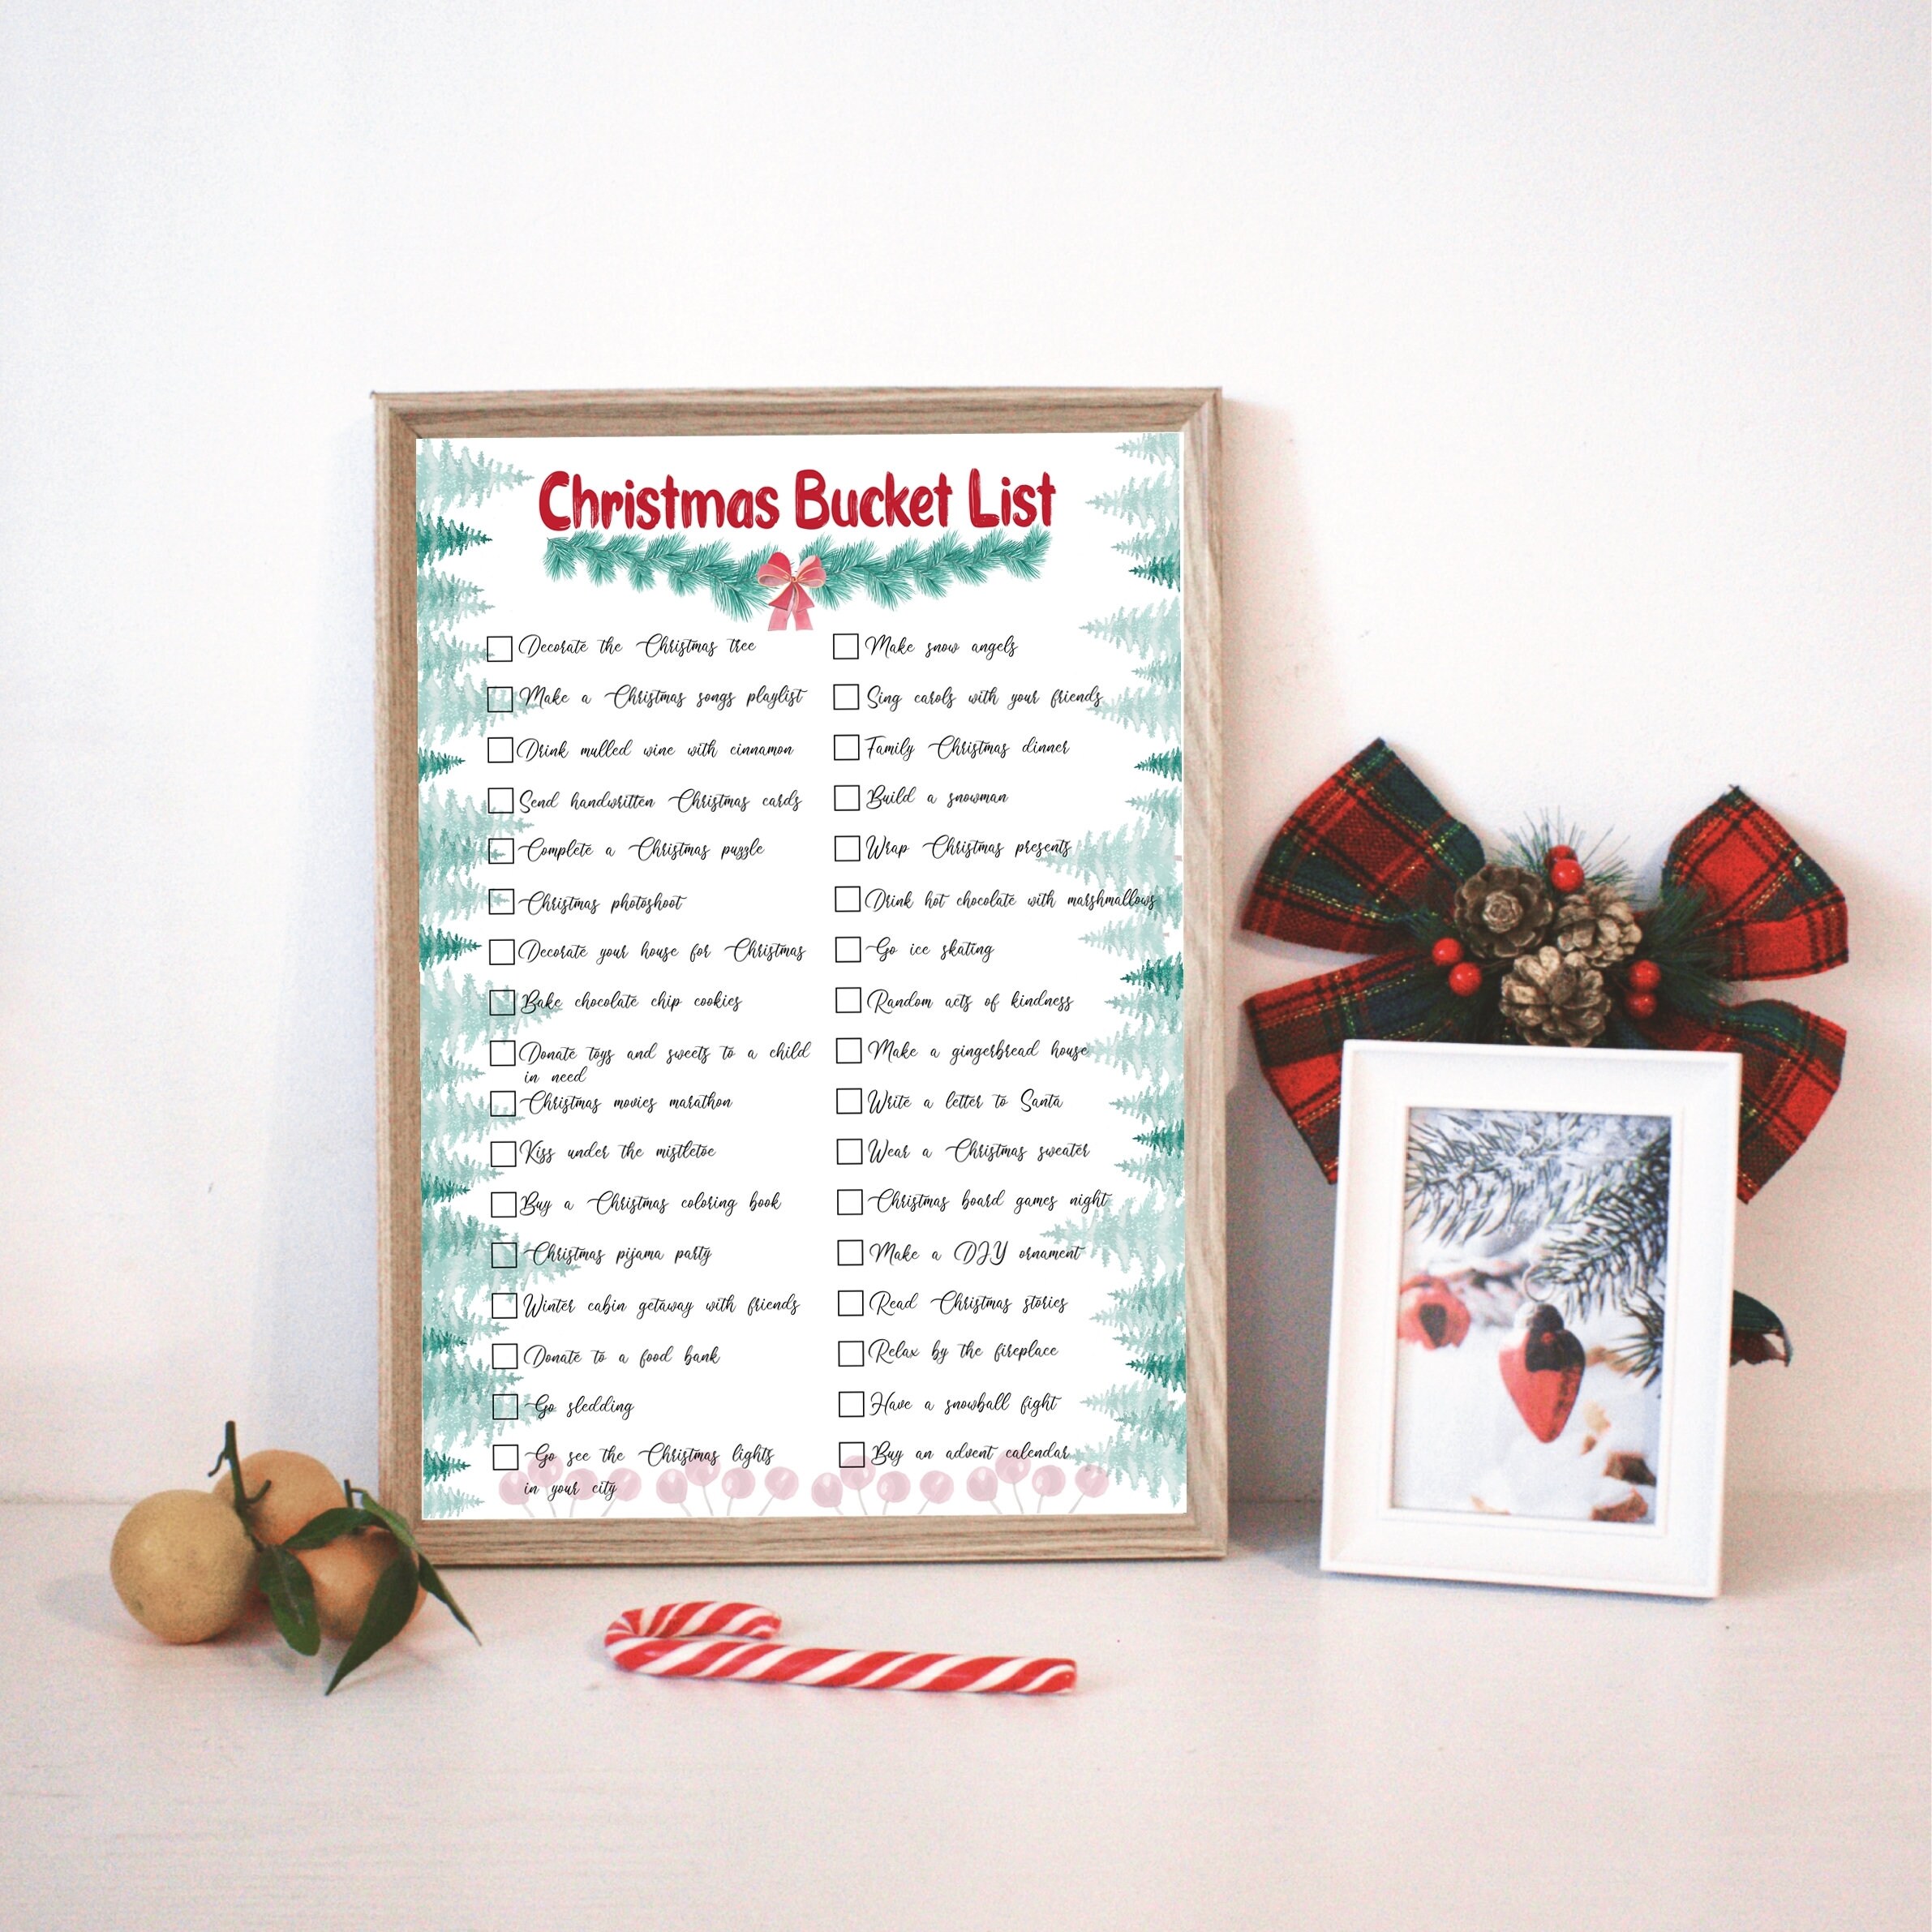 Christmas Bucket List
Decorate the Christmas tree
Make a Christmas songs playlist
Drink mulled wine with cinnamon
Send handwritten Christmas cards
Complete a Christmas puzzle
Christmas photoshoot
Decorate your house for Christmas
Bake chocolate chip cookies
Donate toys and sweets to a child
in need
Christmas movies marathon
Kiss under the mistletoe
Buy a Christmas coloring book
Christmas pijama party
Winter cabin getaway with friends
Donate to a food bank
Go sledding
Go see the Christmas lights
in your city
Make snow angels
Sing carols with your friends
Family Christmas dinner
Build a snowman
Wrap Christmas presents
Drink hot chocolate with marshmallows
Go ice skating
Random acts of kindness
Make a gingerbread house
Write a letter to Santa
Wear a Christmas sweater
Christmas board games night
Make a DIY ornament
Read Christmas stories
Relax by the fireplace
Have a snowball fight
Buy an advent calendar